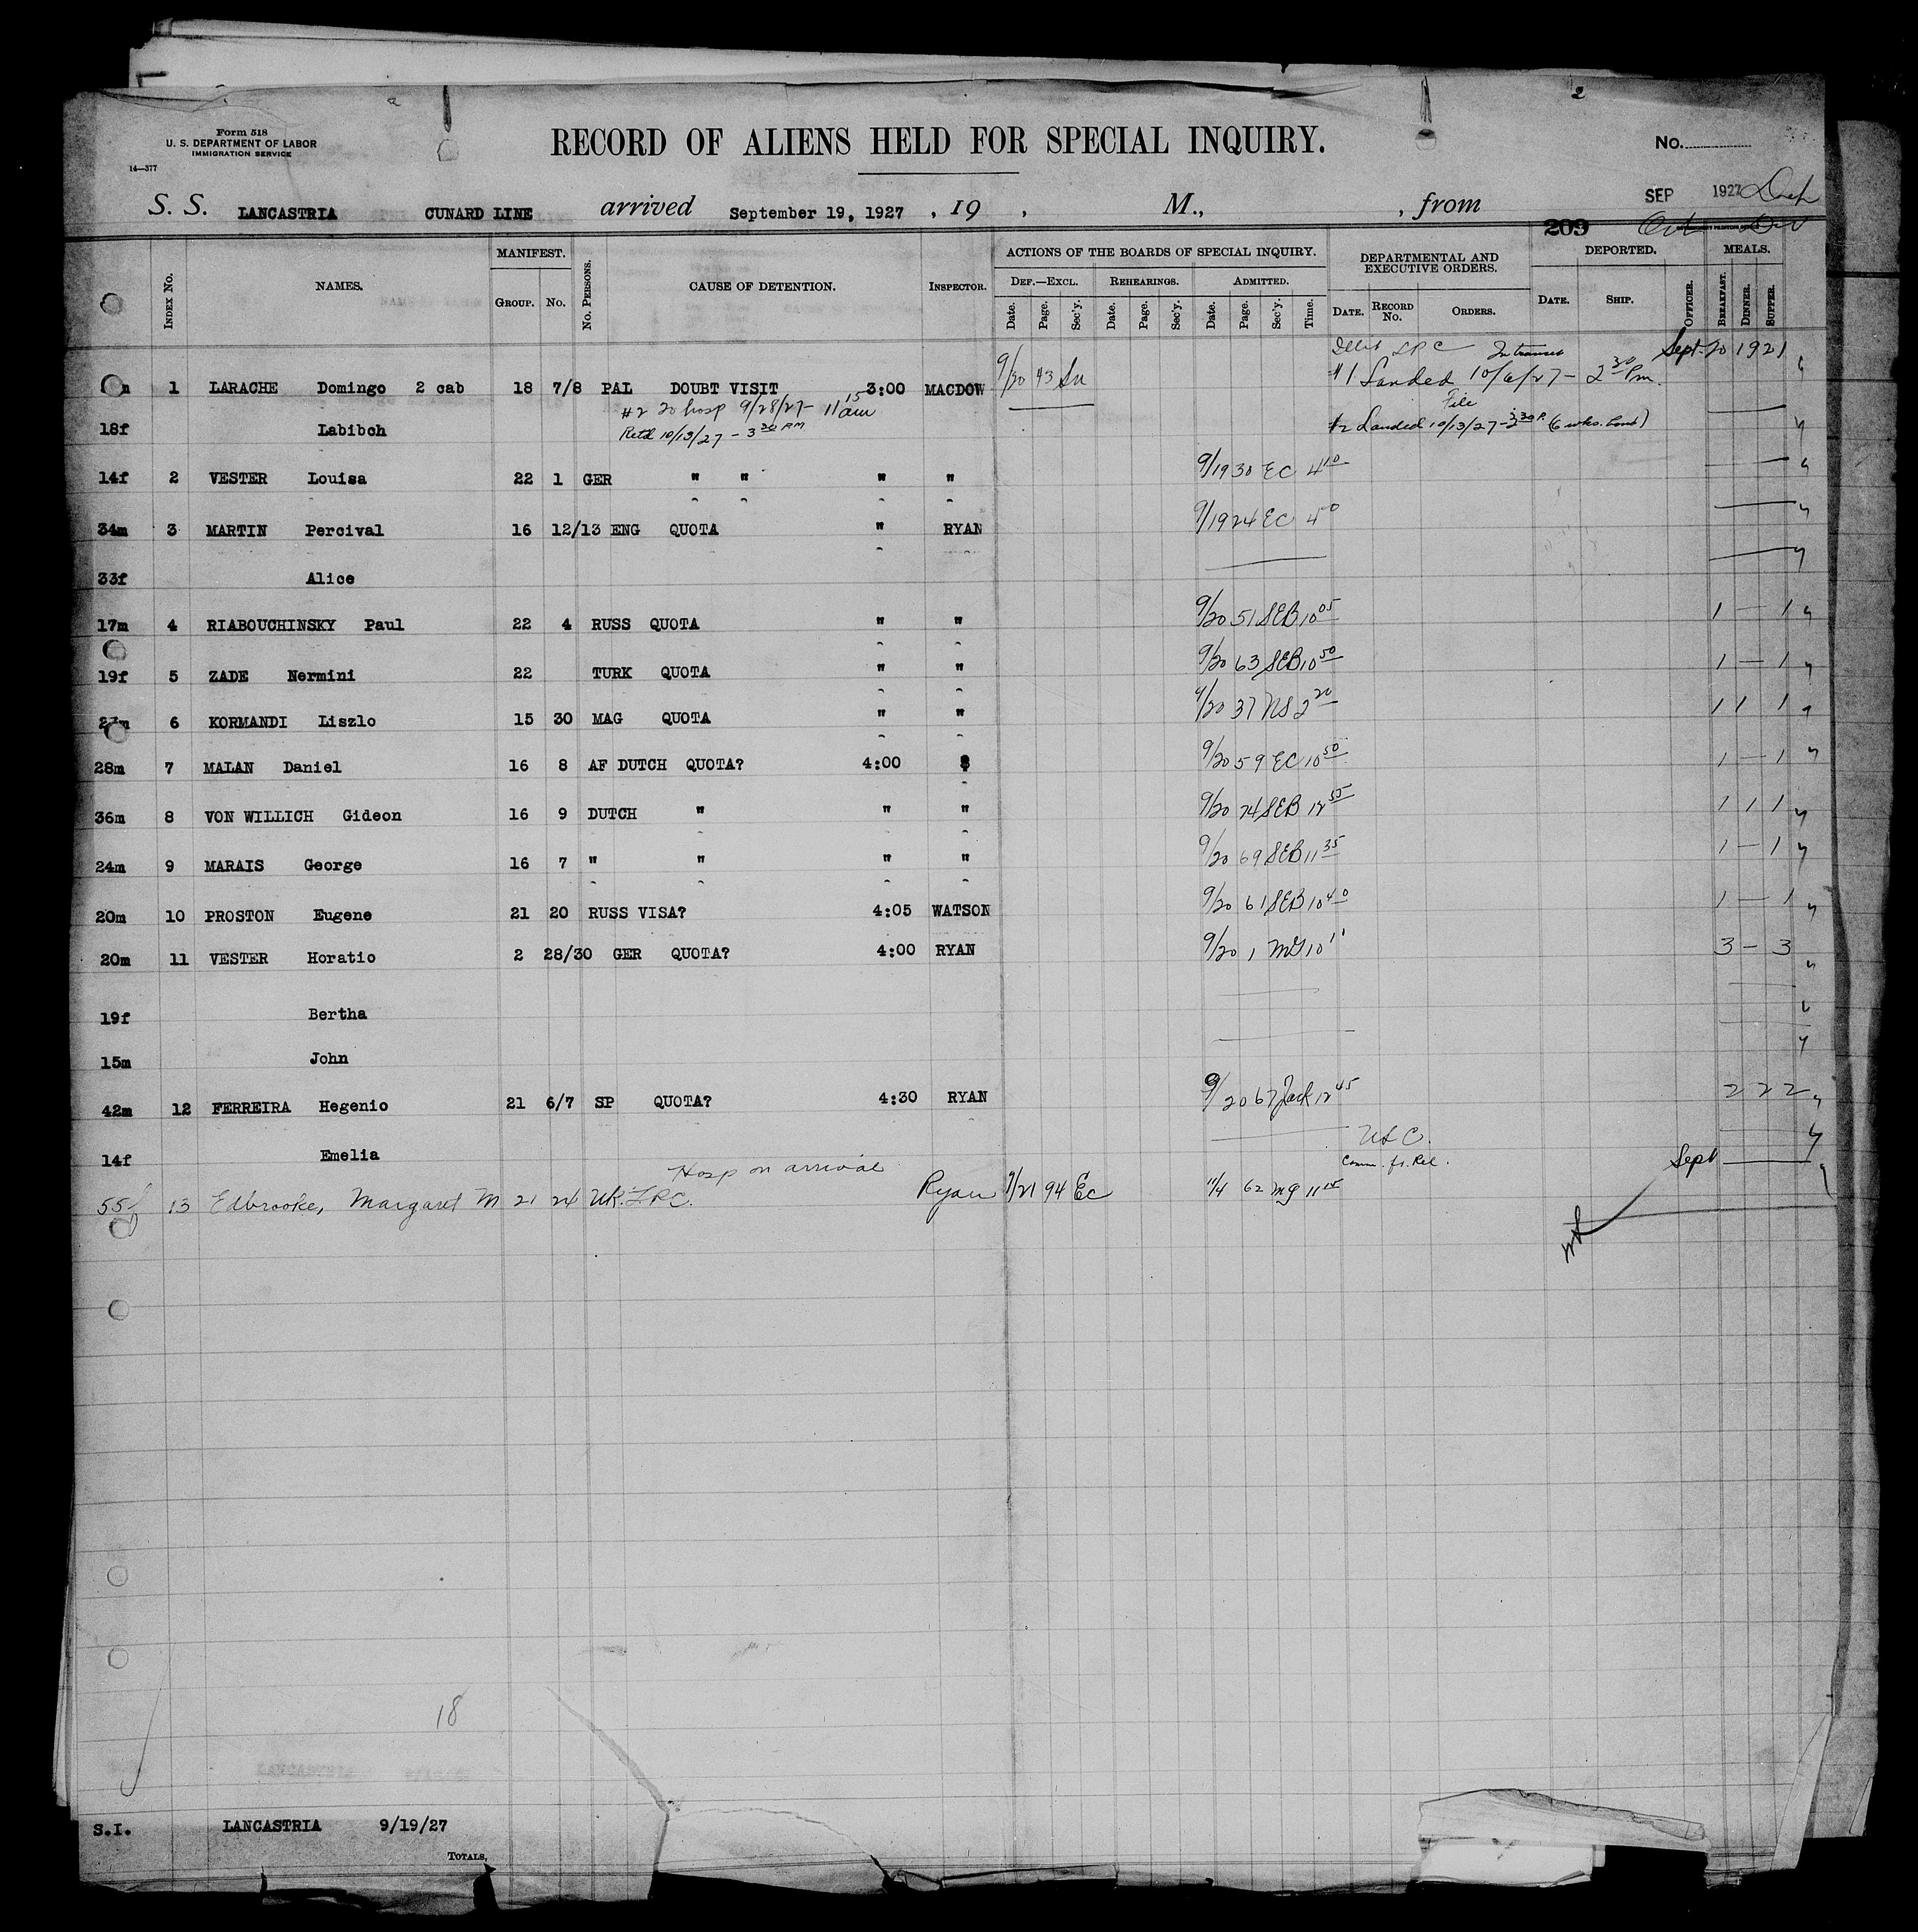 2
Form 518
U. S. DEPARTMENT OF LABOR
IMMIGRATION SERVICE
14—377
RECORD OF ALIENS HELD FOR SPECIAL INQUIRY.
No.
S. S. LANCASTRIA CUNARD LINE arrived September 19, 1927 , 19 , M., , from
SEP 1927
209
INDEX NO. NAMES. MANIFEST. GROUP. NO. NO. PERSONS. CAUSE OF DETENTION. INSPECTOR. ACTIONS OF THE BOARDS OF SPECIAL INQUIRY. DEF.—EXCL. REHEARINGS. ADMITTED. DEPARTMENTAL AND EXECUTIVE ORDERS. DEPORTED. MEALS.
Date. Page. Sec'y. Date. Page. Sec'y. Date. Page. Sec'y. Time. DATE. RECORD NO. ORDERS. DATE. SHIP. OFFICER. BREAKFAST. DINNER. SUPPER.
LPC Intransit Sept
1 LARACHE Domingo 2 cab 18 7/8 PAL DOUBT VISIT 3:00 MACDOW 9/20 43 Sn #1 Landed 10/6/27 - 2 30 Pm.
#2 To hosp 9/28/27 - 11 15 am File
18f Labibch Retd 10/13/27 - 3 30 PM #2 Landed 10/13/27 - 3 30 P. (6 wks. bond)
14f 2 VESTER Louisa 22 1 GER " " " " 9/19 30 EC 4 10
34m 3 MARTIN Percival 16 12/13 ENG QUOTA " RYAN 9/19 24 EC 4 50
33f Alice
17m 4 RIABOUCHINSKY Paul 22 4 RUSS QUOTA " " 9/20 51 SEB 10 05 1 — 1
19f 5 ZADE Nermini 22 TURK QUOTA " " 9/20 63 SEB 10 50 1 — 1
6 KORMANDI Liszlo 15 30 MAG QUOTA " " 9/20 37 NS 2 20 1 1 1
28m 7 MALAN Daniel 16 8 AF DUTCH QUOTA? 4:00 " 9/20 59 EC 10 50 1 — 1
36m 8 VON WILLICH Gideon 16 9 DUTCH " " " 9/20 74 SEB 12 55 1 1 1
24m 9 MARAIS George 16 7 " " " " 9/20 69 SEB 11 35 1 — 1
20m 10 PROSTON Eugene 21 20 RUSS VISA? 4:05 WATSON 9/20 61 SEB 10 40 1 — 1
20m 11 VESTER Horatio 2 28/30 GER QUOTA? 4:00 RYAN 9/20 1 3 — 3
19f Bertha
15m John
42m 12 FERREIRA Hegenio 21 6/7 SP QUOTA? 4:30 RYAN 9/20 67 Jack 12 45 2 2 2
14f Emelia
Hosp on arrival Comm. Sept
55f 13 Edbrooke, Margaret M 21 24 UK. LPC. Ryan 9/21 94 Ec 11/4 62 mg 11
18
S.I. LANCASTRIA 9/19/27
TOTALS,